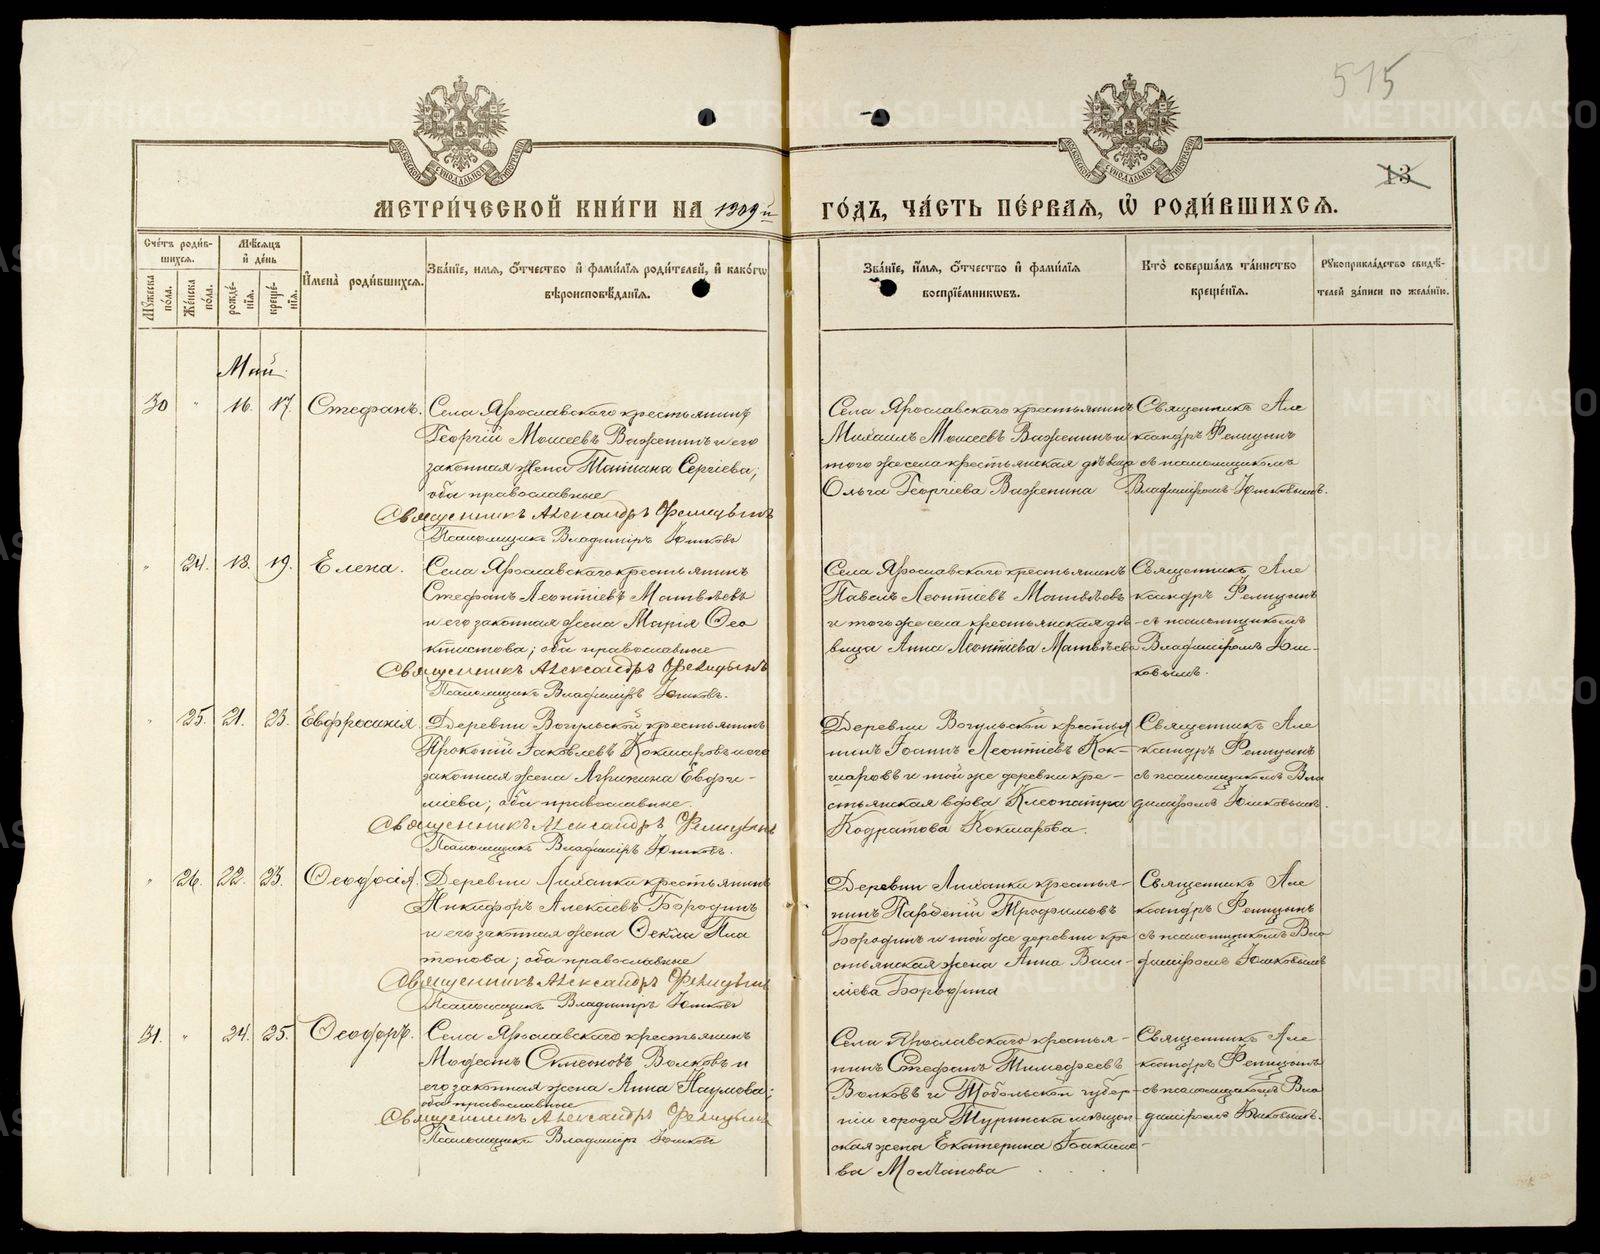 515
13
МЕТРИ́ЧЕСКОЙ КНИ́ГИ НА 1909й ГО́ДЪ, ЧА́СТЬ ПЕ́РВАЯ, Ѡ РОДИ́ВШИХСЯ.
Сче́тъ роди́в-
шихся.
Му́жеска по́ла.
Же́нска по́ла.
Мѣ́сяцъ
и де́нь
рожде́-
нїя.
креще́-
нїя.
И́мена роди́вшихся.
Зва́нїе, имя, о́тчество и фами́лїя роди́телей, и како́гѡ
вѣроисповѣ́данїя.
Зва́нїе, и́мя, о́тчество и фами́лїя
воспрїе́мниковъ.
Кто̀ соверша́лъ та́инство
креще́нїя.
Рꙋкоприкла́дство свидѣ́-
телей за́писи по жела́нїю.
Май.
30 " 16. 17. Стефанъ.
Села Ярославскаго крестьянинъ
Георгій Моисеевъ Важенинъ и его
законная жена Татіана Сергіева;
оба православные
Священникъ Александръ Фелицынъ
Псаломщикъ Владиміръ Юшковъ
Села Ярославскаго крестьянинъ
Михаилъ Моисеевъ Важенинъ и
того же села крестьянская дѣвица
Ольга Георгіева Важенина
Священникъ Але
ксандръ Фелицынъ
съ псаломщикомъ
Владиміромъ Юшковымъ.
" 24. 18. 19. Елена.
Села Ярославскаго крестьянинъ
Стефанъ Леонтіевъ Матвѣевъ
и его законная жена Марія Ѳео
ктистова; оба православные
Священникъ Александръ Фелицынъ
Псаломщикъ Владиміръ Юшковъ.
Села Ярославскаго крестьянинъ
Павелъ Леонтіевъ Матвѣевъ
и того же села крестьянская дѣ-
вица Анна Леонтіева Матвѣева
Священникъ Але
ксандръ Фелицынъ
съ псаломщикомъ
Владиміромъ Юш-
ковымъ.
" 25. 21. 23. Евфросинія
Деревни Вогульской крестьянинъ
Прокопій Іаковлевъ Кокшаровъ и его
законная жена Агрипина Евфи-
міева; оба православные.
Священникъ Александръ Фелицынъ
Псаломщикъ Владиміръ Юшковъ.
Деревни Вогульской крестья
нинъ Іоаннъ Леонтіевъ Кок-
шаровъ и той же деревни кре-
стьянская вдова Клеопатра
Кодратова Кокшарова.
Священникъ Але
ксандръ Фелицынъ
съ псаломщикомъ Вла
диміромъ Юшковымъ.
" 26. 22. 23. Ѳеодосія.
Деревни Лиханки крестьянинъ
Никифоръ Алексѣевъ Бородинъ
и его законная жена Ѳекла Пла
тонова; оба православные
Священникъ Александръ Фелицынъ
Псаломщикъ Владиміръ Юшковъ
Деревни Лиханки крестья-
нинъ Парѳеній Трофимовъ
Бородинъ и той же деревни кре
стьянская жена Анна Васи-
ліева Бородина
Священникъ Але
ксандръ Фелицынъ
съ псаломщикомъ Вла
диміромъ Юшковымъ
31. " 24. 25. Ѳеодоръ.
Села Ярославскаго крестьянинъ
Модестъ Симеоновъ Волковъ и
его законная жена Анна Наумова;
оба православные
Священникъ Александръ Фелицынъ
Псаломщикъ Владиміръ Юшковъ
Села Ярославскаго крестья-
нинъ Стефанъ Тимофеевъ
Волковъ и Тобольской губер-
ніи города Туринска мѣщан
ская жена Екатерина Іоакимо-
ва Молчанова
Священникъ Але
ксандръ Фелицынъ
съ псаломщикомъ Вла
диміромъ Юшковымъ.
METRIKI.GASO-URAL.RU